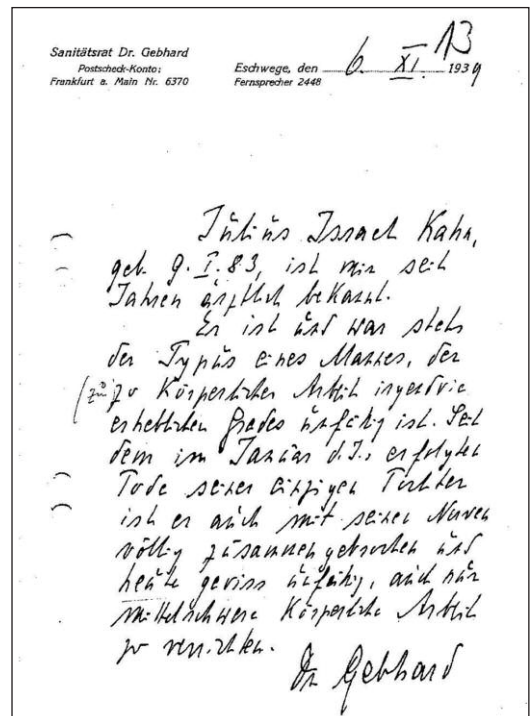 Sanitätsrat Dr. Gebhard
Postscheck-Konto:
Frankfurt a. Main Nr. 6370
Eschwege, den 6. XI. 1939
Fernsprecher 2448
13
Julius Israel Kahn,
geb. 9. I. 83, ist mir seit
Jahren ärztlich bekannt.
Er ist und war stets
der Typus eines Mannes, der
(zu) zu körperlicher Arbeit irgendwie
erheblichen Grades unfähig ist. Seit
dem im Januar d. J. erfolgten
Tode seiner einzigen Tochter
ist er auch mit seinen Nerven
völlig zusammengebrochen und
heute gewiss unfähig, auch nur
mittelschwere körperliche Arbeit
zu verrichten.
Dr Gebhard